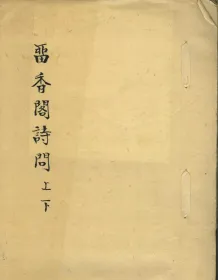 畱香閣詩問上下